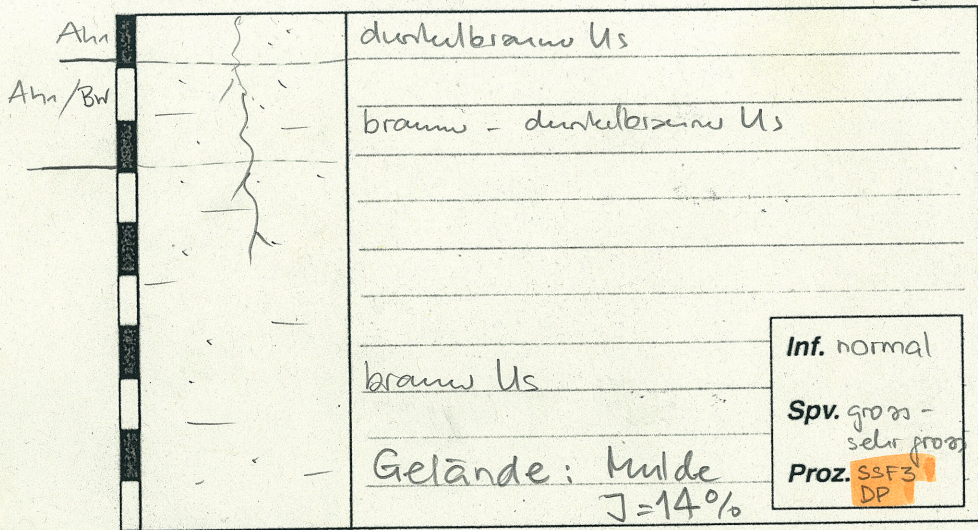 Ahn
dunkelbrauner Us
Ahn/BW
brauner - dunkelbrauner Us
brauner Us
Gelände: Mulde
J=14%
Inf. normal
Spv. gross -
sehr gross
Proz. SSF3
DP